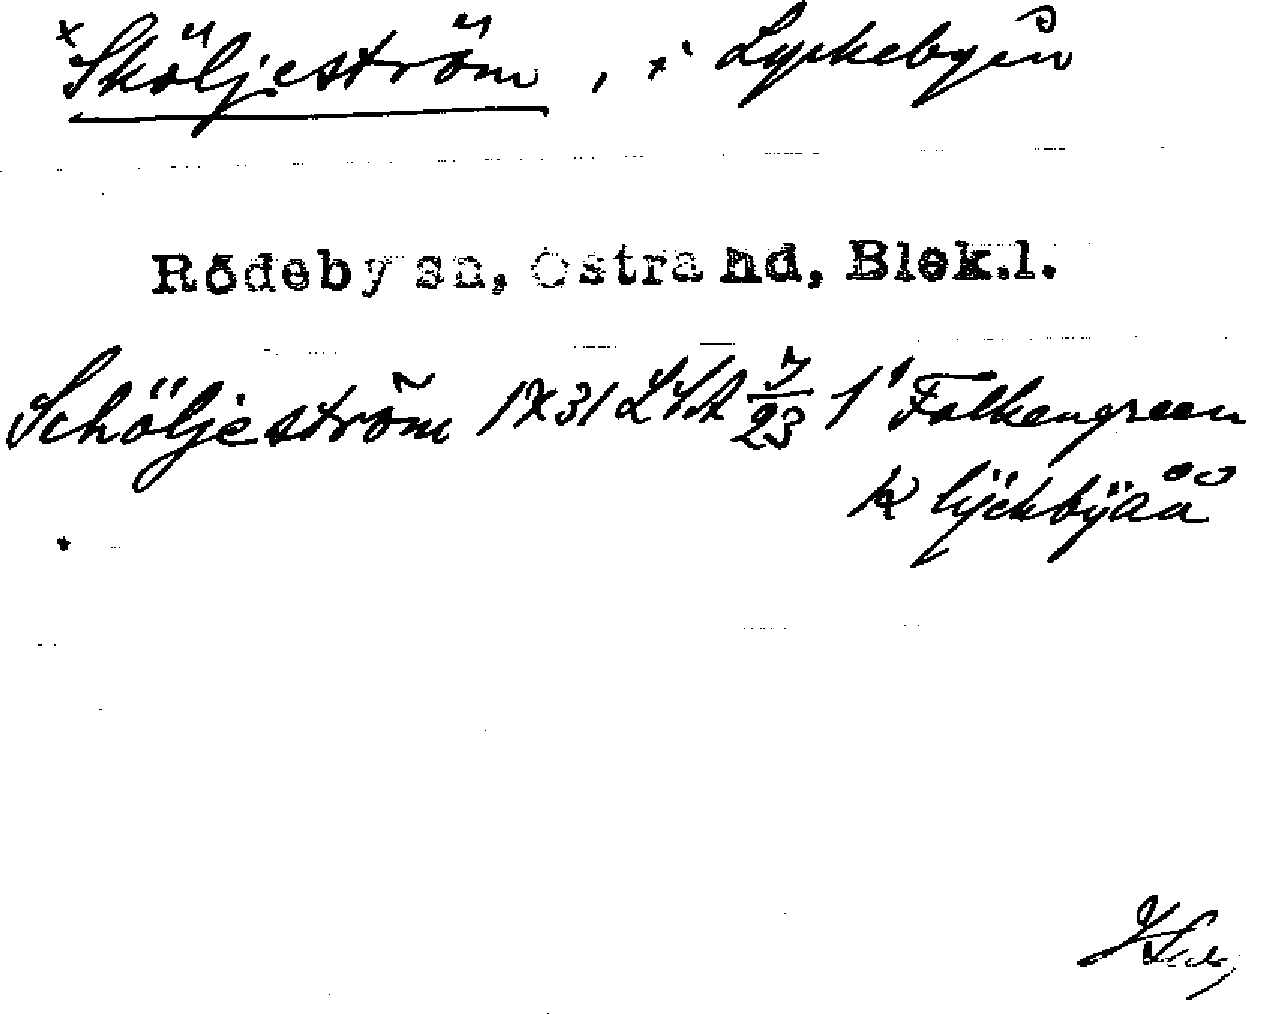 *Sköljeström, i Lyckebyån
Rödeby sn, Östra hd, Blek.l.
Schöljeström 1731 LSA 7/23 1' Falkengreen
k lÿckbÿaå